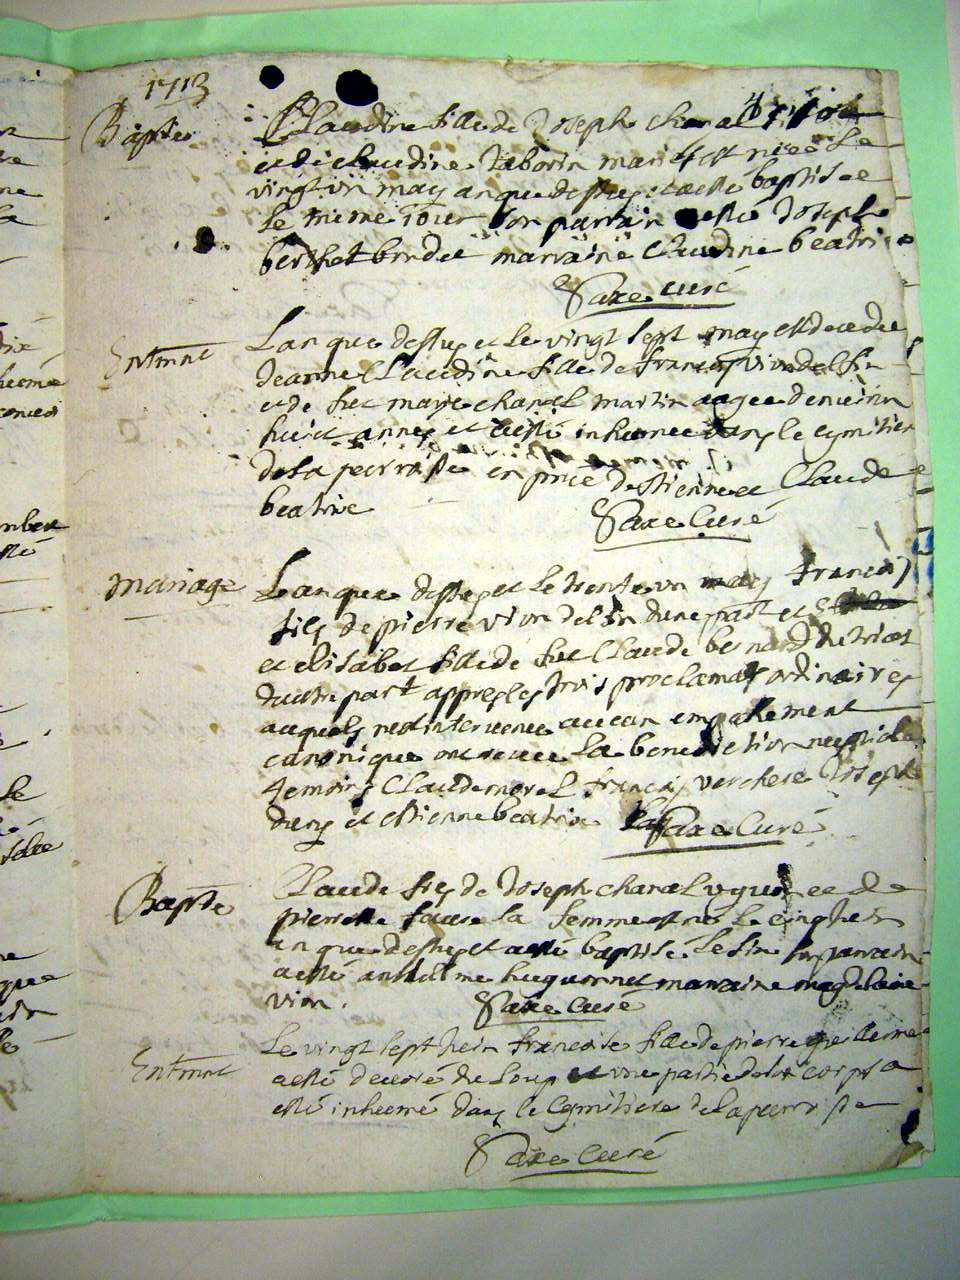 1713
Baptes
Claudine fille de Joseph chanal
et de claudine Taborin mariés est née le
vingt un may an que dessus et a esté baptisée
le mème iour son parrain a esté Joseph
berthet bondet marraine Claudine beatri
Saxe curé
Entmnt
Lan que dessus et le vingt sept may est decedée
Jeanne Claudine fille de françois vion delphin
et de fue marie chanal martin aagee denuiron
huict années et a esté inhumee dans le cymitiere
de la parroisse en pnce destienne et Claude
beatrix
Saxe Curé
mariage
Lan que dessus et le trente un may françois
fils de pierre vion delfin dune part et
et elisabet fille de fut Claude bernard du triat
dautre part appres les trois proclamats ordinaires
auquels nest intervenu aucun empeschement
canonique ont receu la benediction nuptiale
temoins Claude morel françois verchere Joseph
et estienne beatrix Saxe Curé
Bapte
Claude fils de Joseph chanal uguet et de
pierrette faure sa femme est né le cinq hein
an que dessus et a esté baptisé le six son parrain
a esté anthelme huguonnet marraine magdelaine
vion.
Saxe Curé
Entmnt
Le vingt sept hein francoise fille de pierre guilleme
a esté devoré du Loup et une partie de son corps a
esté inhumé dans le Cymitiere de la parroisse
Saxe Curé